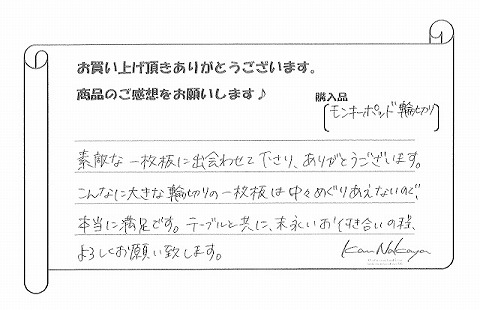 お買い上げ頂きありがとうございます。
商品のご感想をお願いします♪
購入品
[モンキーポッド輪切り]
素敵な一枚板に出会わせて下さり、ありがとうございます。
こんなに大きな輪切りの一枚板は中々めぐりあえないので、
本当に満足です。テーブルと共に、末永いお付き合いの程、
よろしくお願い致します。